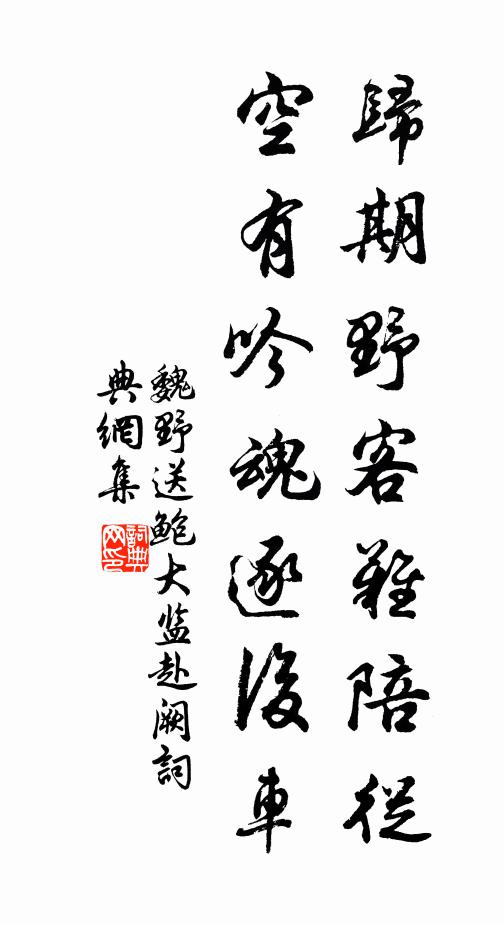 歸期野客難陪從
空有吟魂逐後車
魏野送鮑大监赴阙詞
典網集
詞典
网印